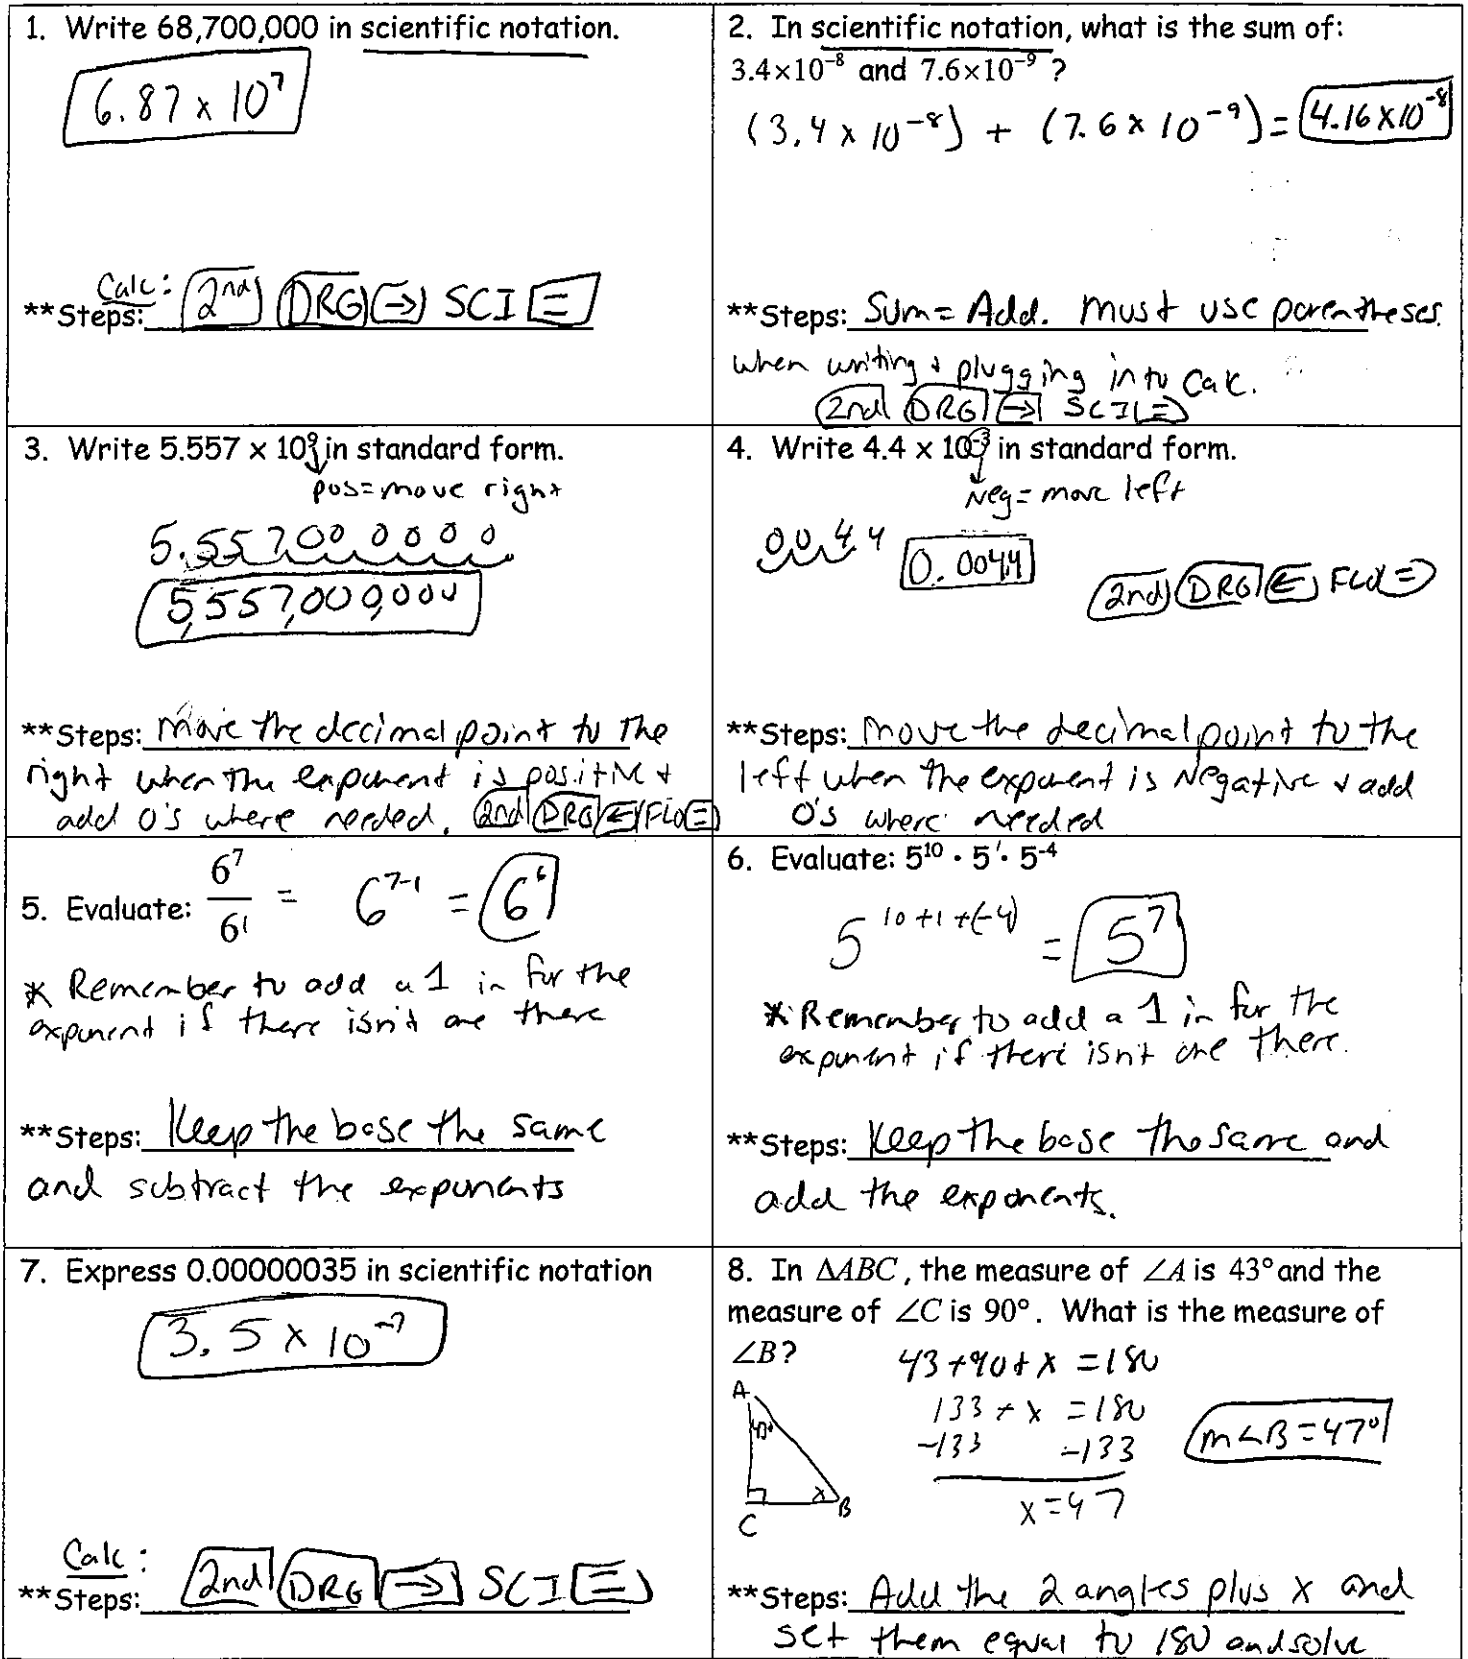 1. Write 68,700,000 in scientific notation.
6.87 x 10⁷
Calc:
**Steps: 2nd DRG → SCI =
2. In scientific notation, what is the sum of:
3.4×10⁻⁸ and 7.6×10⁻⁹ ?
(3.4 x 10⁻⁸) + (7.6 x 10⁻⁹) = 4.16 x 10⁻⁸
**Steps: Sum = Add. Must use parentheses.
when writing & plugging into Calc.
2nd DRG → SCI =
3. Write 5.557 x 10⁹ in standard form.
pos = move right
5.557000000
5,557,000,000
**Steps: Move the decimal point to the
right when the exponent is positive &
add 0's where needed. 2nd DRG ← Flo =
4. Write 4.4 x 10⁻³ in standard form.
Neg = move left
0 0 4 4
0.0044
2nd DRG ← Flo =
**Steps: Move the decimal point to the
left when the exponent is Negative & add
0's where needed
5. Evaluate: 6⁷/6¹ = 6⁷⁻¹ = 6⁶
* Remember to add a 1 in for the
exponent if there isn't one there
**Steps: Keep the base the same
and subtract the exponents
6. Evaluate: 5¹⁰ · 5¹ · 5⁻⁴
5¹⁰⁺¹⁺⁽⁻⁴⁾ = 5⁷
* Remember to add a 1 in for the
exponent if there isn't one there.
**Steps: Keep the base the same and
add the exponents.
7. Express 0.00000035 in scientific notation
3.5 x 10⁻⁷
Calc:
**Steps: 2nd DRG → SCI =
8. In ΔABC, the measure of ∠A is 43° and the
measure of ∠C is 90°. What is the measure of
∠B?
43 + 90 + x = 180
133 + x = 180
-133 -133
x = 47
m∠B = 47°
A
43°
x
B
C
**Steps: Add the 2 angles plus x and
set them equal to 180 and solve